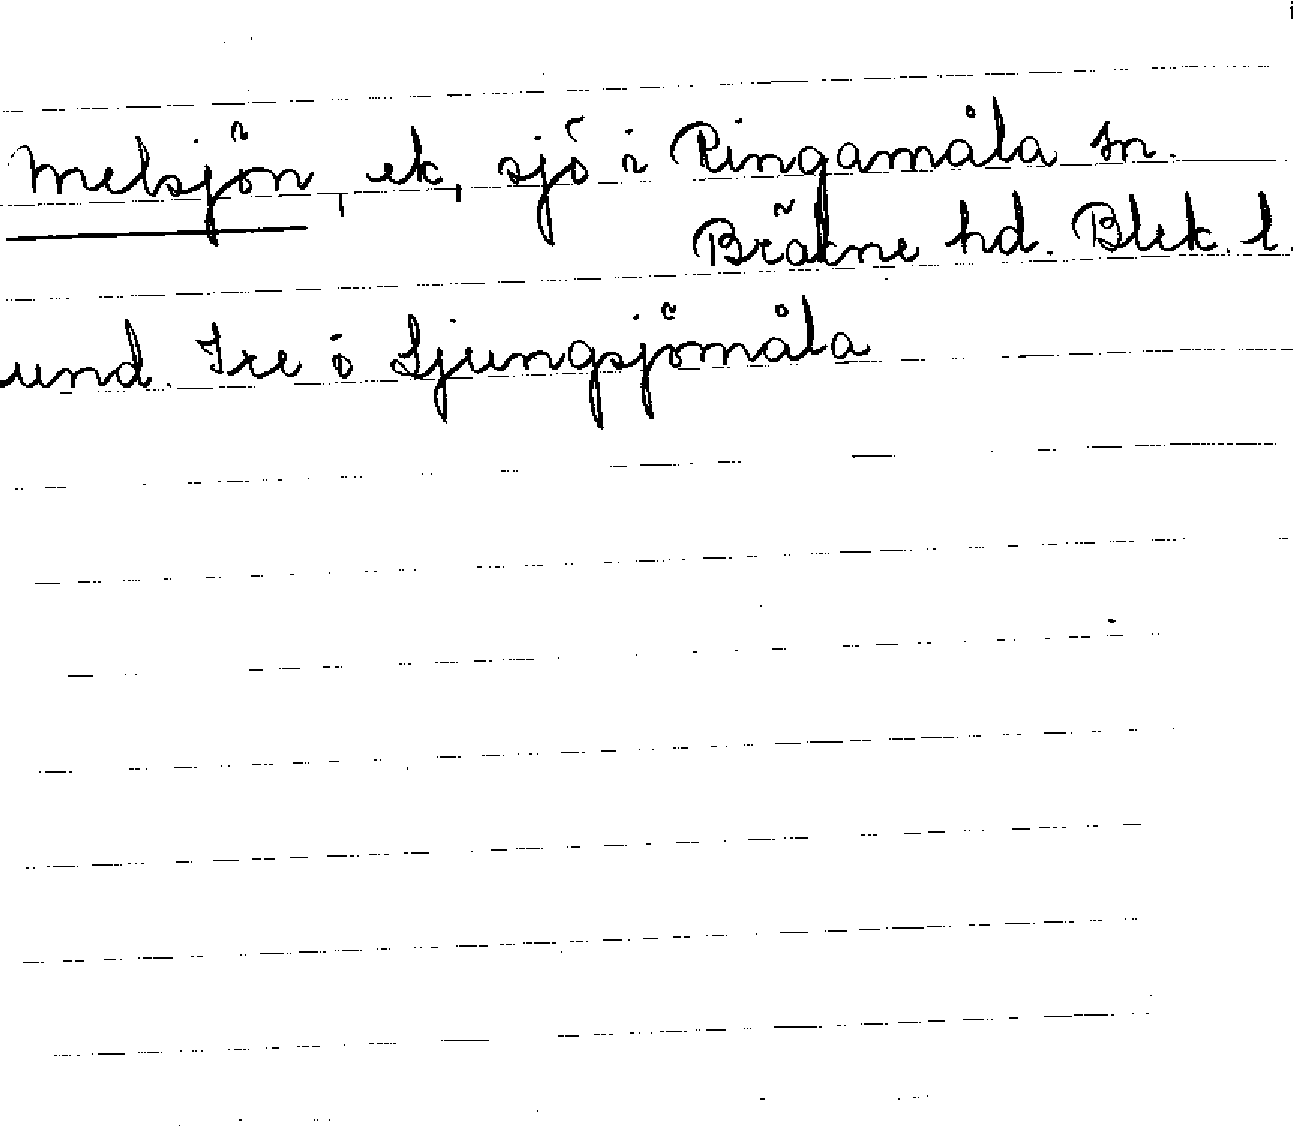 Melsjön, ek, sjö i Ringamåla sn.
Bräkne hd. Blek. l.
und. Ire ö Ljungsjömåla